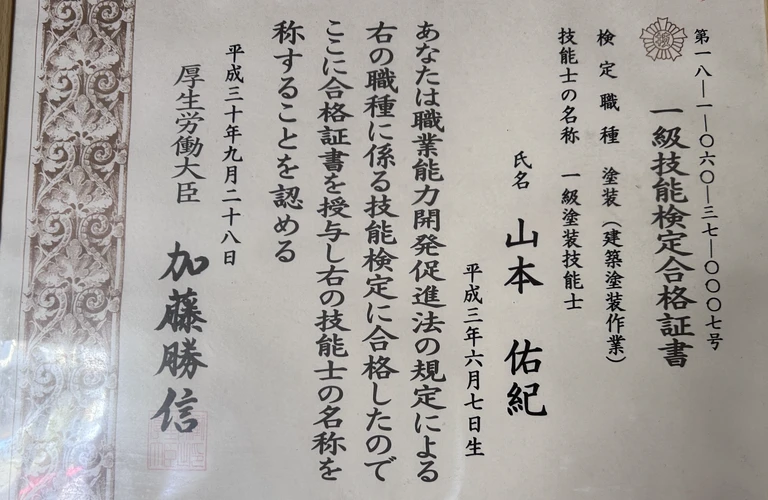 第一八―一―〇六〇―三七―〇〇〇七号
一級技能検定合格証書
検定職種　塗装（建築塗装作業）
技能士の名称　一級塗装技能士
氏名　山本　佑紀
平成三年六月七日生
あなたは職業能力開発促進法の規定による
右の職種に係る技能検定に合格したので
ここに合格証書を授与し右の技能士の名称を
称することを認める
平成三十年九月二十八日
厚生労働大臣　加藤勝信